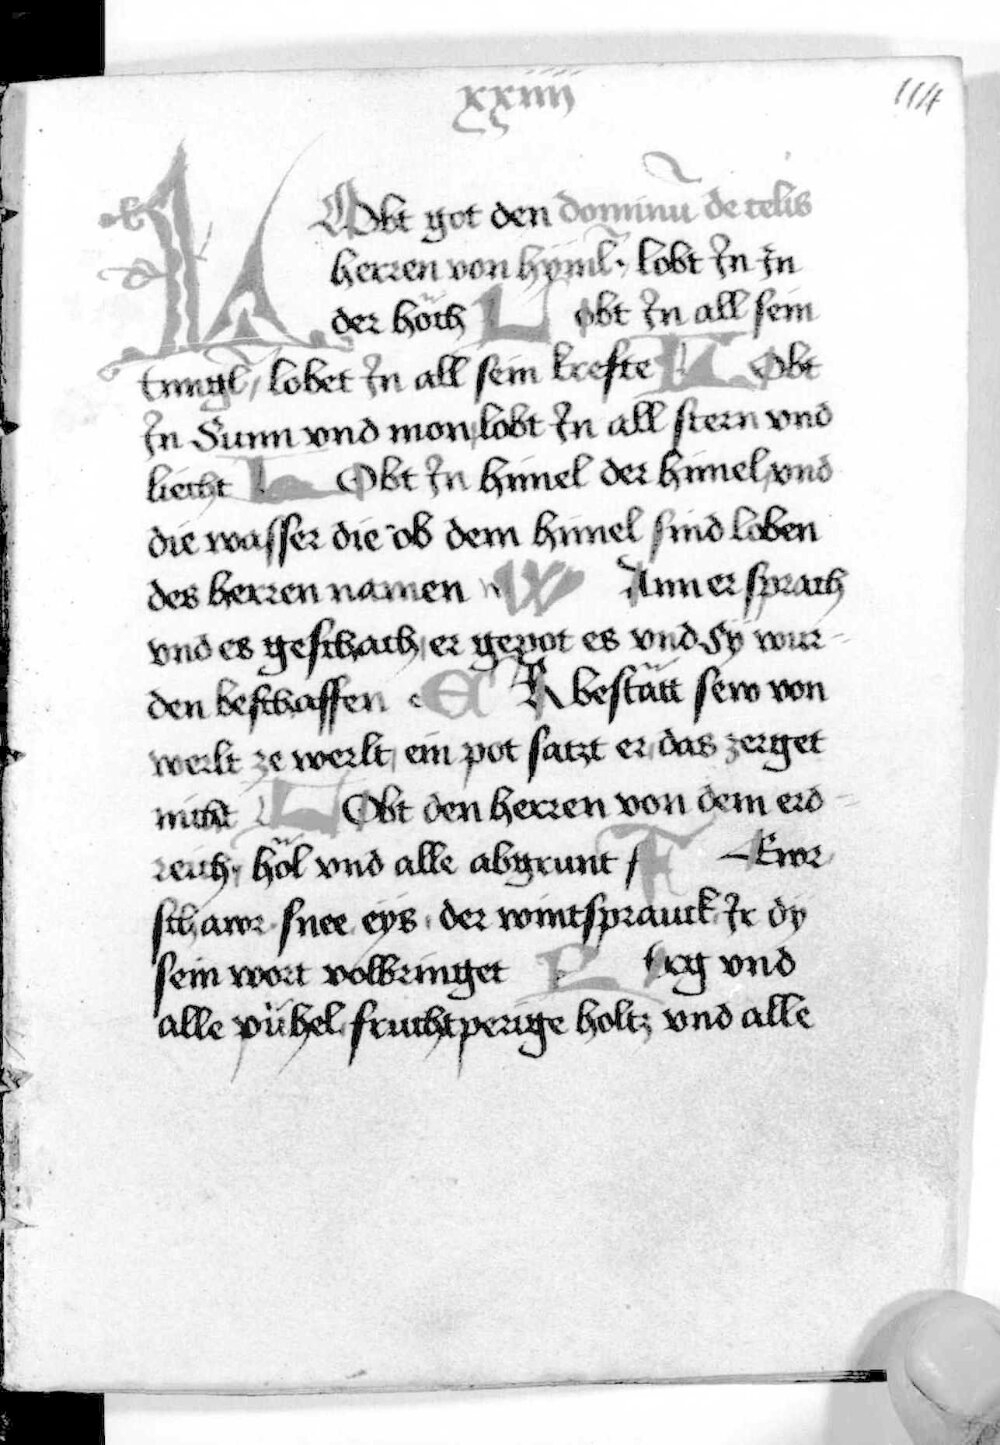 xxiiii
114
LObt got den dominū de celis
herren von hyml̄· lobt Jn in
der höch Lobt Jn all sein
tungl̄, lobet Jn all sein krefte LObt
Jn Sunn vnd mon, lobt Jn all stern vnd
liecht LObt Jn himel der himel, vnd
die wasser die ob dem himel sind loben
des herren namen WAnn er sprach
vnd es geschach, er gepot es vnd Sy wur-
den beschaffen ER bestätt sew von
werlt ze werlt, ein pot satzt er, das zerget
nicht LObt den herren von dem erd-
reich, höl vnd alle abgrunt FEwr
schawr snee eys, der wintsprauck Jr dy
sein wort volbringet Perg vnd
alle pühel, fruchtperige holtz vnd alle